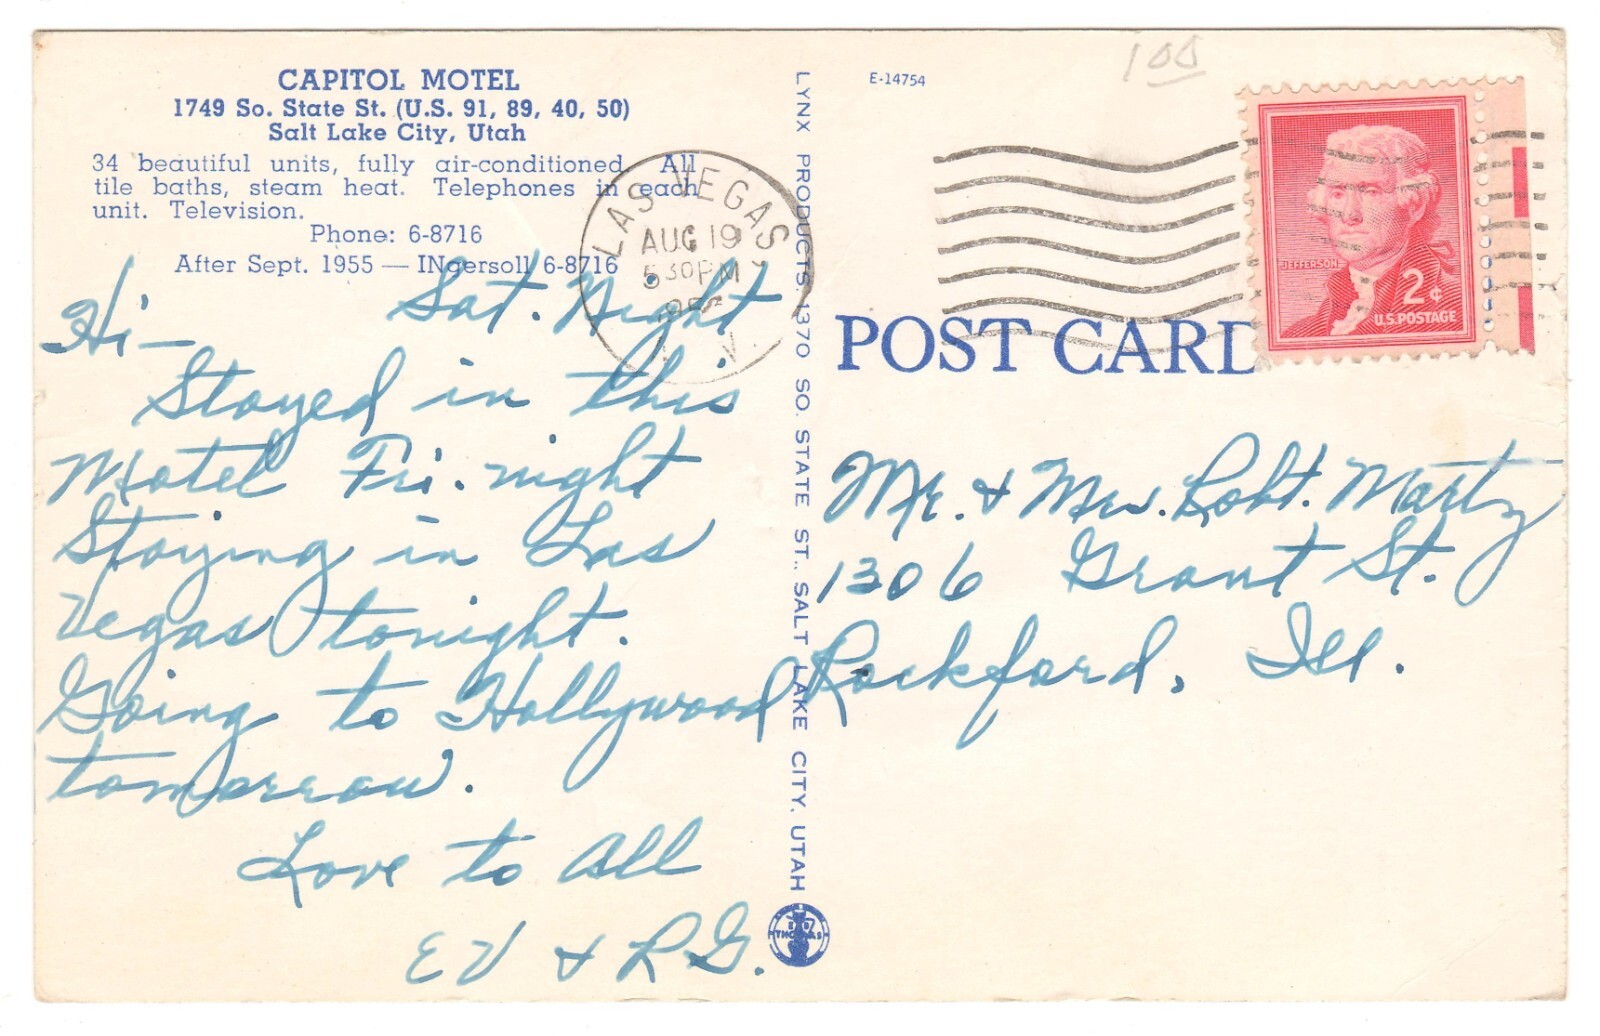 CAPITOL MOTEL
1749 So. State St. (U.S. 91, 89, 40, 50)
Salt Lake City, Utah
34 beautiful units, fully air-conditioned. All
tile baths, steam heat. Telephones in each
unit. Television.
Phone: 6-8716
After Sept. 1955 — INgersoll 6-8716
Hi— Sat. Night
Stayed in this
Motel Fri. night
Staying in Las
Vegas tonight.
Going to Hollywood
tomorrow.
Love to All
EV & RG.
LYNX PRODUCTS, 1370 SO. STATE ST., SALT LAKE CITY, UTAH
E-14754
100
LAS VEGAS
AUG 19
5 30 PM
JEFFERSON
2¢
U.S. POSTAGE
POST CARD
Mr. & Mrs. Robt. Martz
1306 Grant St.
Rockford, Ill.